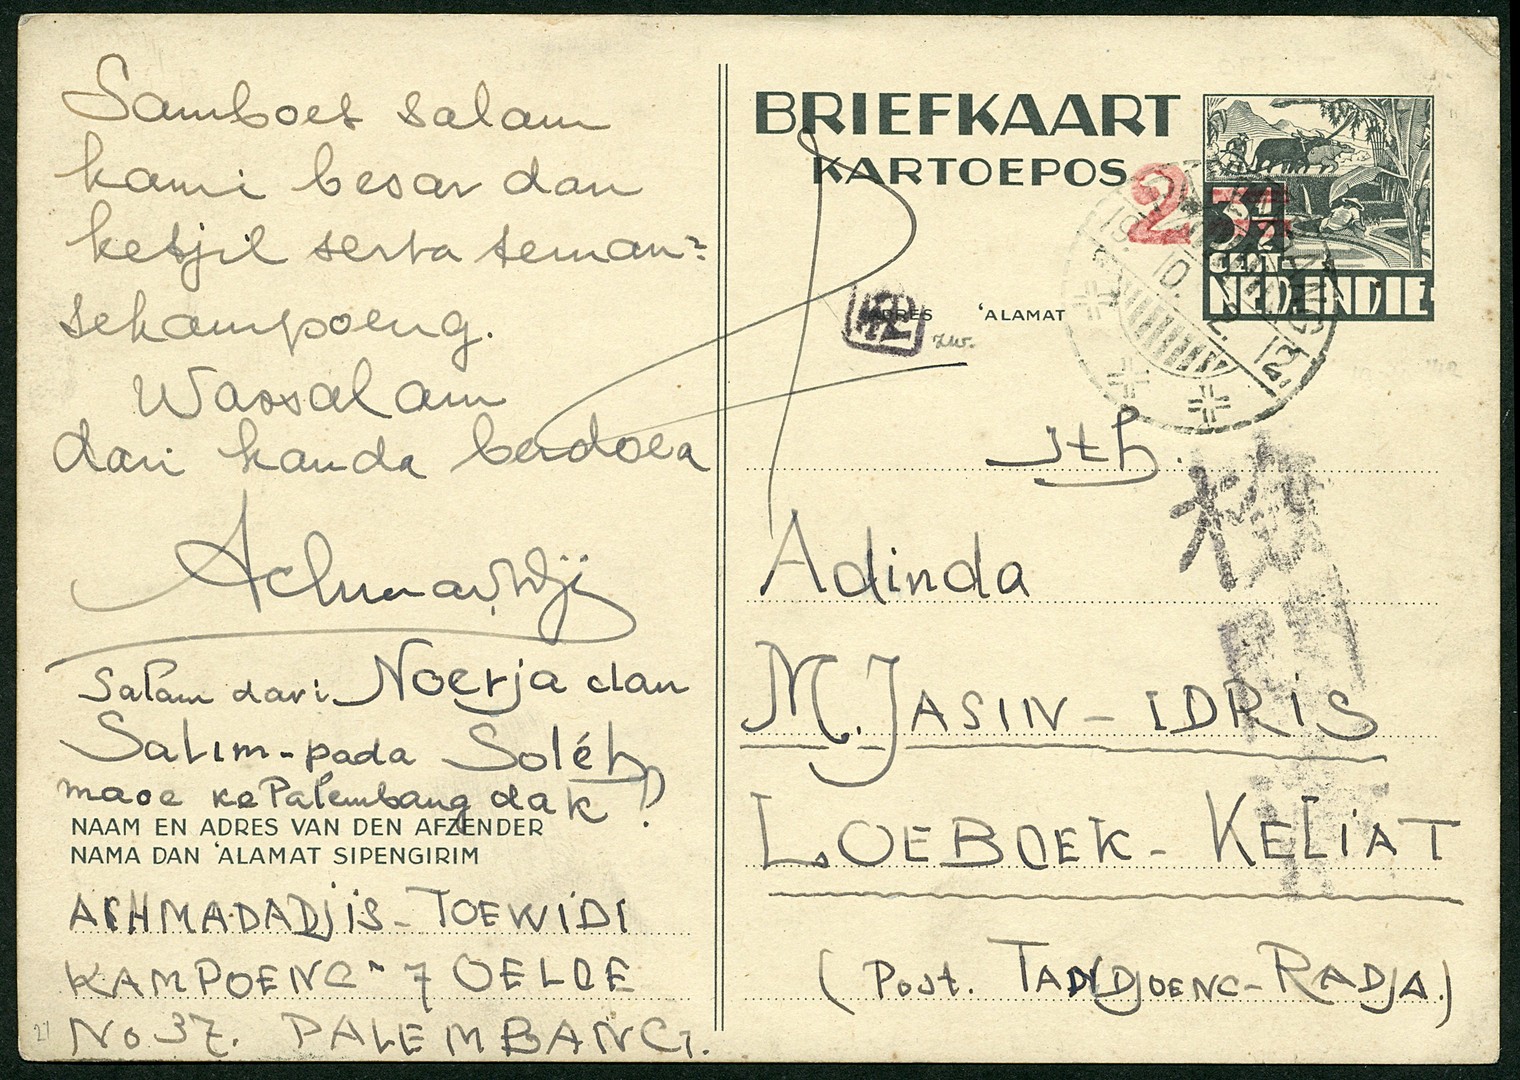 Samboet salam
kami besar dan
ketjil serta teman2
sekampoeng.
Wassalam
dari kanda berdoea
Salam dari Noerja dan
Salim - pada Soléh
maoe ke Palembang dak?
NAAM EN ADRES VAN DEN AFZENDER
NAMA DAN 'ALAMAT SIPENGIRIM
ACHMADADJIS - TOEWIDI
KAMPOENG - 7 OELOE
No 37. PALEMBANG.
BRIEFKAART
KARTOEPOS
2
3½
CENT
NED. INDIE
ADRES 'ALAMAT
Jth.
Adinda
M. JASIN - IDRIS
LOEBOEK - KELIAT
(Post. TANDJOENG - RADJA.)